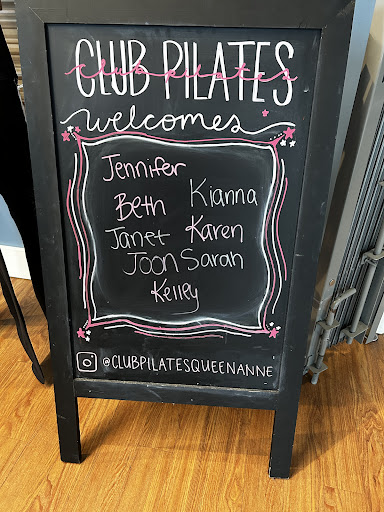 CLUB PILATES
club pilates
welcomes
Jennifer
Beth Kianna
Janet Karen
Joon Sarah
Kelley
@CLUBPILATESQUEENANNE